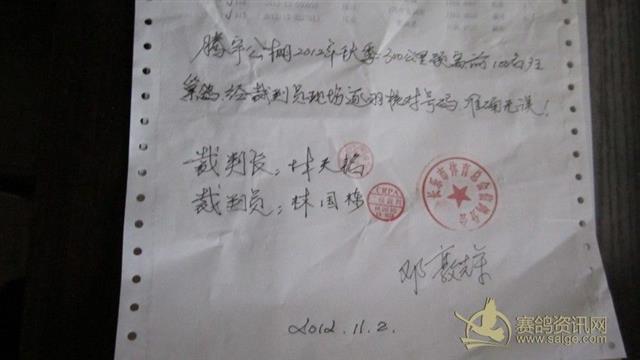 腾宇公棚2012年秋季300公里预赛前100名

鸽,经裁判员现场逐羽核对号码,准确无误!
裁判长:林天
裁判员:林国
CRPA
邓
2012.11.2.
赛鸽资讯网
www.saige.com